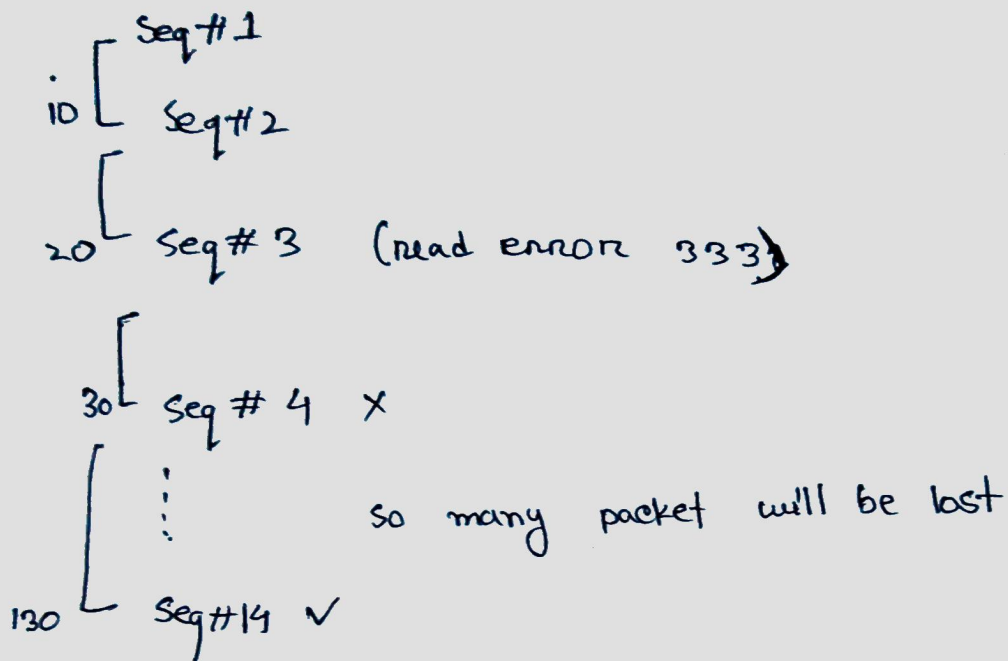 Seq#1
10 Seq#2
20 Seq# 3 (read error 333)
30 Seq # 4 X
so many packet will be lost
130 Seq#14 ✓